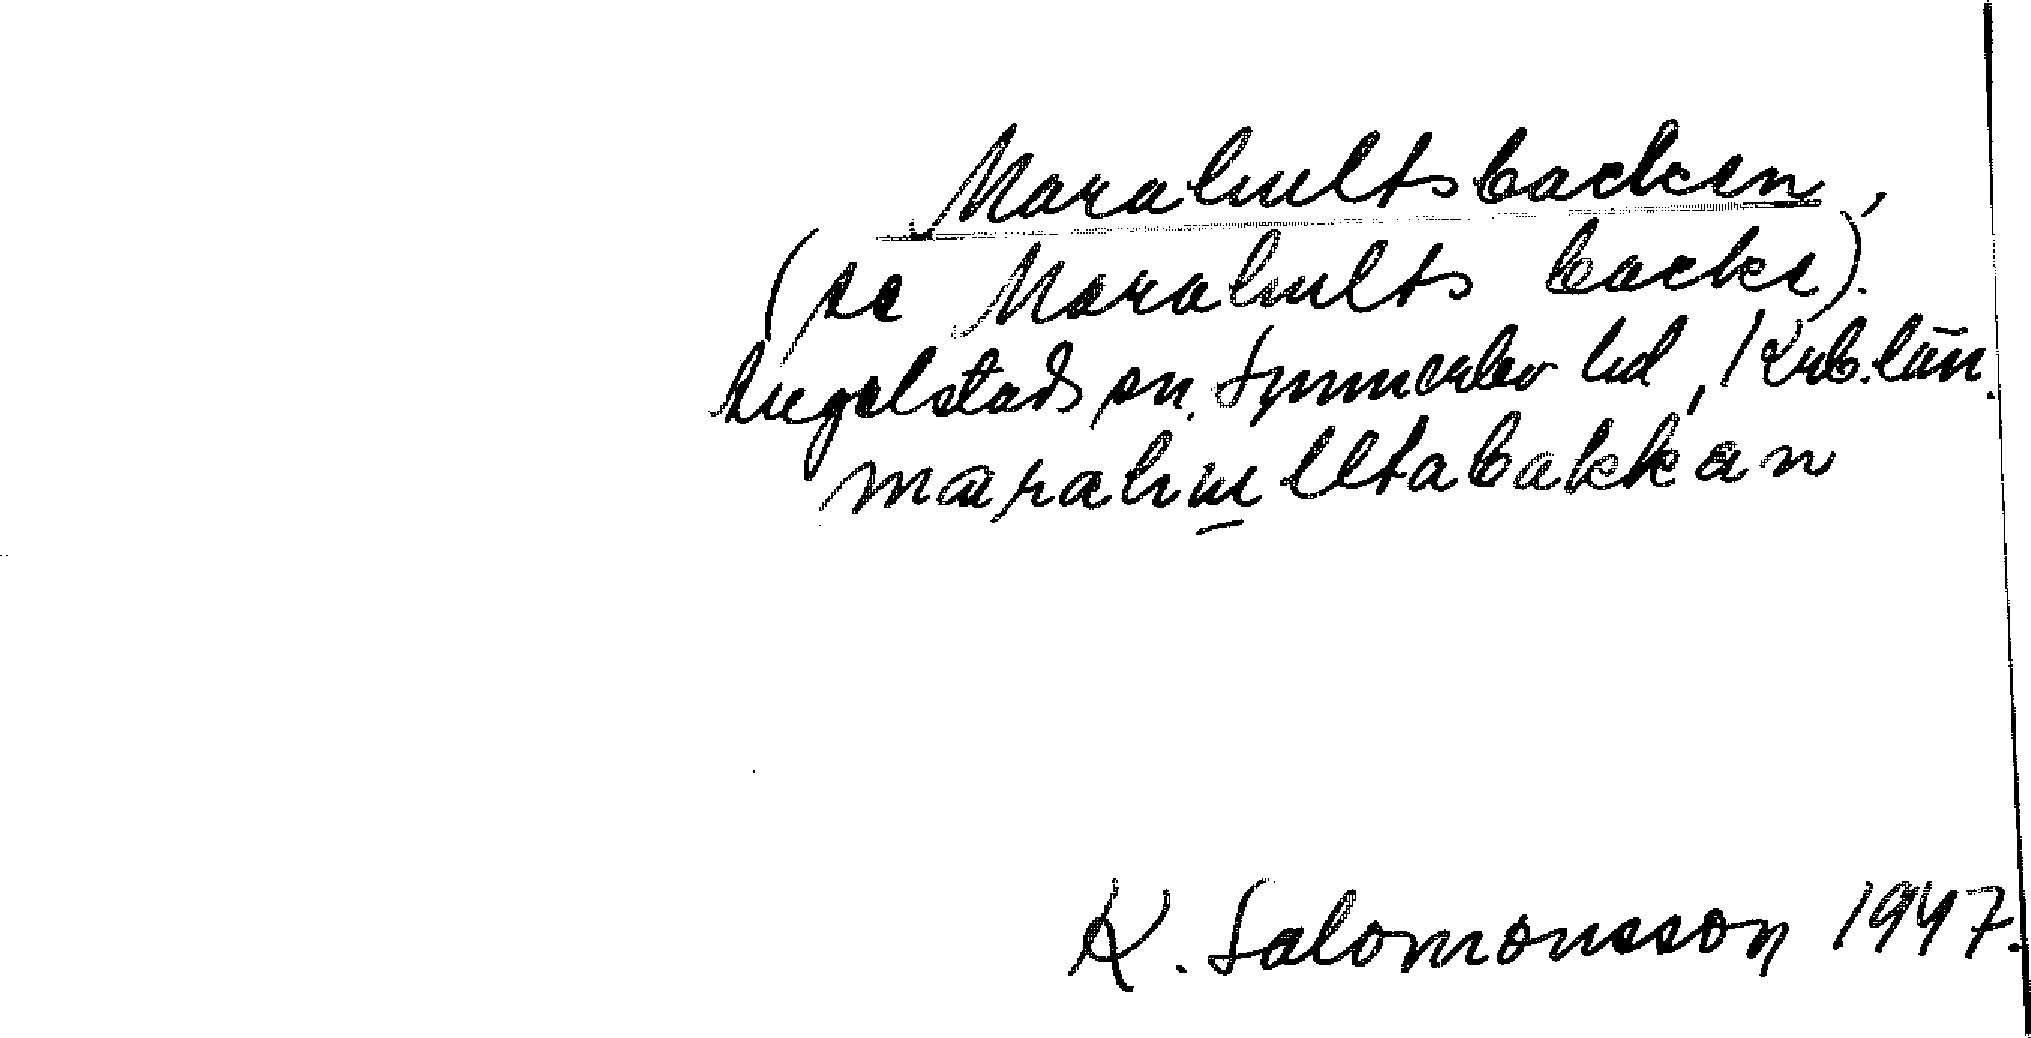 Marahultsbacken,
(se Marahults backe).
Angelstads sn. Sunnerbo hd, Krb. län.
marahulltabakkan
K. Salomonsson 1947.